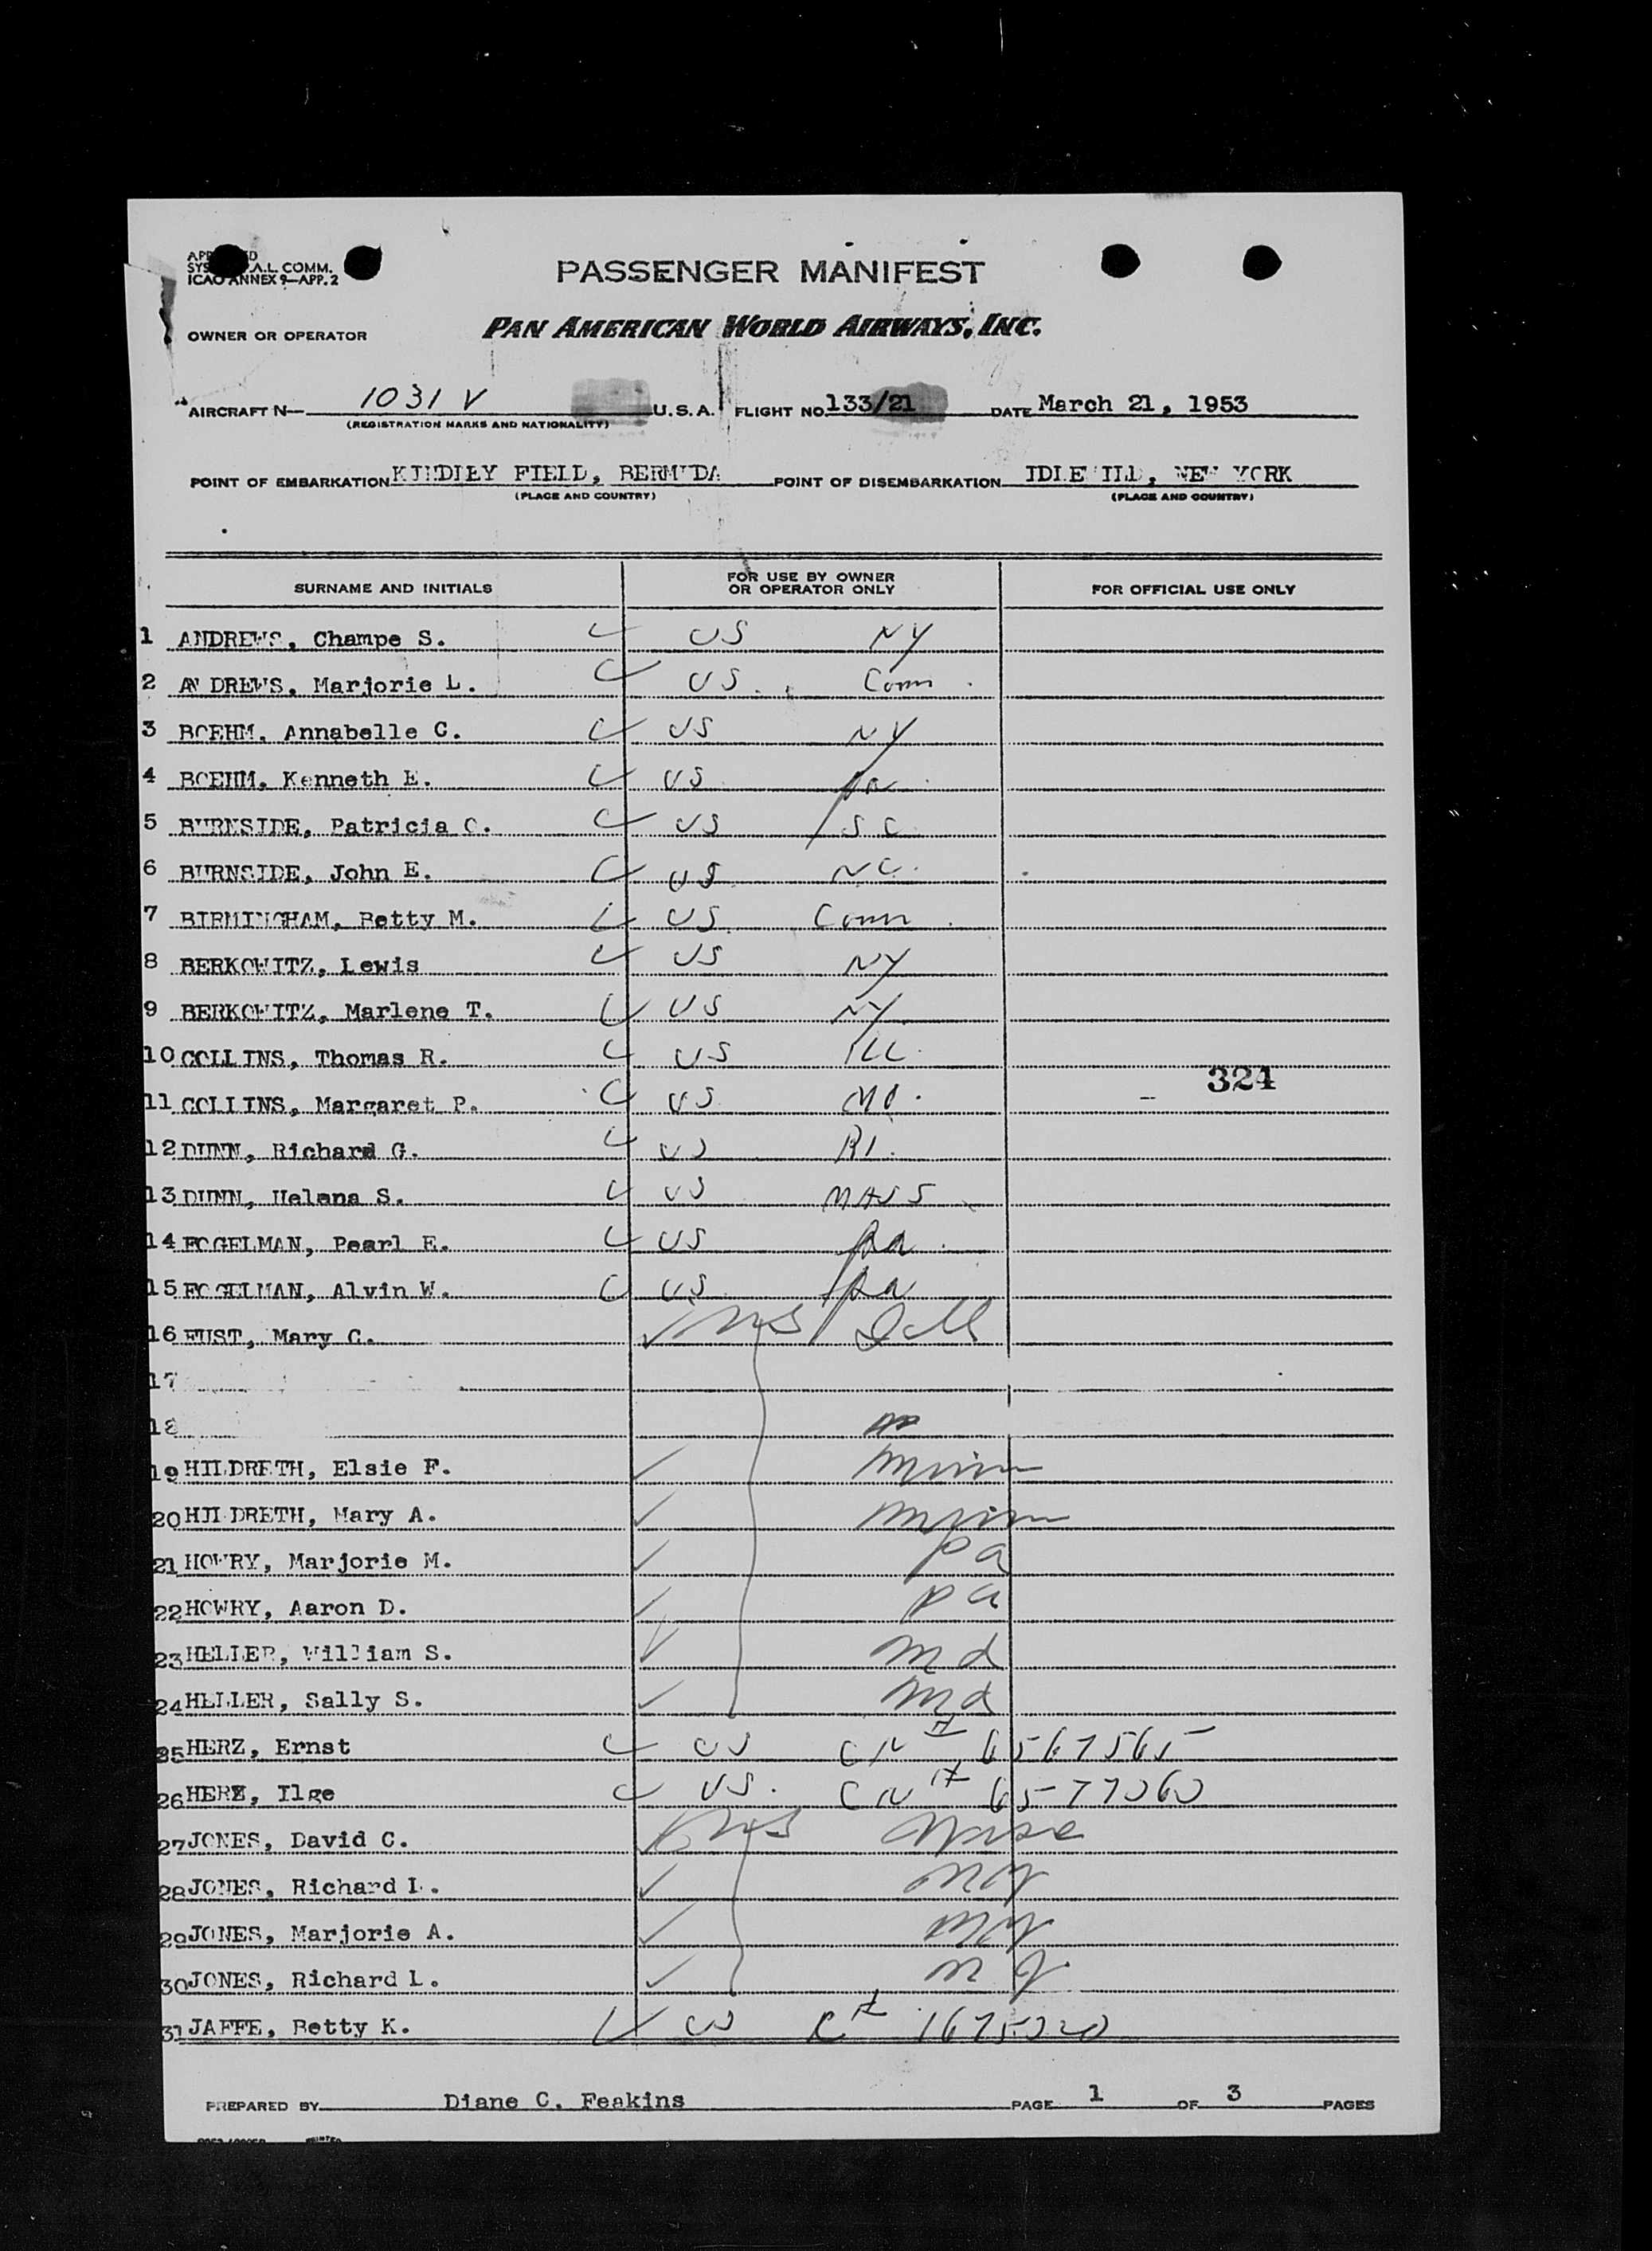 PASSENGER MANIFEST
A.L. COMM.
ICAO ANNEX 9—APP. 2
OWNER OR OPERATOR PAN AMERICAN WORLD AIRWAYS, INC.
AIRCRAFT N— 1031 V U.S.A. FLIGHT NO. 133/21 DATE March 21, 1953
(REGISTRATION MARKS AND NATIONALITY)
POINT OF EMBARKATION KINDLEY FIELD, BERMUDA POINT OF DISEMBARKATION IDLEWILD, NEW YORK
(PLACE AND COUNTRY) (PLACE AND COUNTRY)
SURNAME AND INITIALS FOR USE BY OWNER OR OPERATOR ONLY FOR OFFICIAL USE ONLY
1 ANDREWS, Champe S. US NY
2 ANDREWS, Marjorie L. US Conn
3 BOEHM, Annabelle C. US NY
4 BOEHM, Kenneth E. US Pa
5 BURNSIDE, Patricia C. US SC
6 BURNSIDE, John E. US NC.
7 BIRMINGHAM, Betty M. US Conn
8 BERKOWITZ, Lewis US NY
9 BERKOWITZ, Marlene T. US NY
10 COLLINS, Thomas R. US ILL.
324
11 COLLINS, Margaret P. US MO.
12 DUNN, Richard G. US RI.
13 DUNN, Helena S. US MASS
14 FOGELMAN, Pearl E. US Pa
15 FOGELMAN, Alvin W. US Pa
16 FUST, Mary C.
17
18
19 HILDRETH, Elsie F. Minn
20 HILDRETH, Mary A. Minn
21 HOWRY, Marjorie M. Pa
22 HOWRY, Aaron D. Pa
23 HELLER, William S. Md
24 HELLER, Sally S. Md
25 HERZ, Ernst US CN# 6567565
26 HERZ, Ilge US. CN# 6577060
27 JONES, David C.
28 JONES, Richard L. NY
29 JONES, Marjorie A. NY
30 JONES, Richard L. NJ
31 JAFFE, Betty K. US
PREPARED BY Diane C. Feakins PAGE 1 OF 3 PAGES